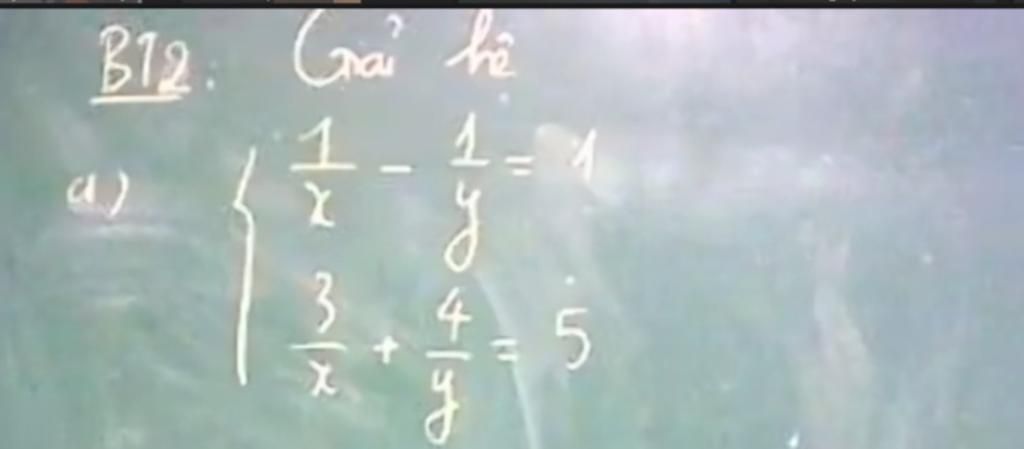 BT2: Giải hệ
a) { 1/x - 1/y = 1
3/x + 4/y = 5